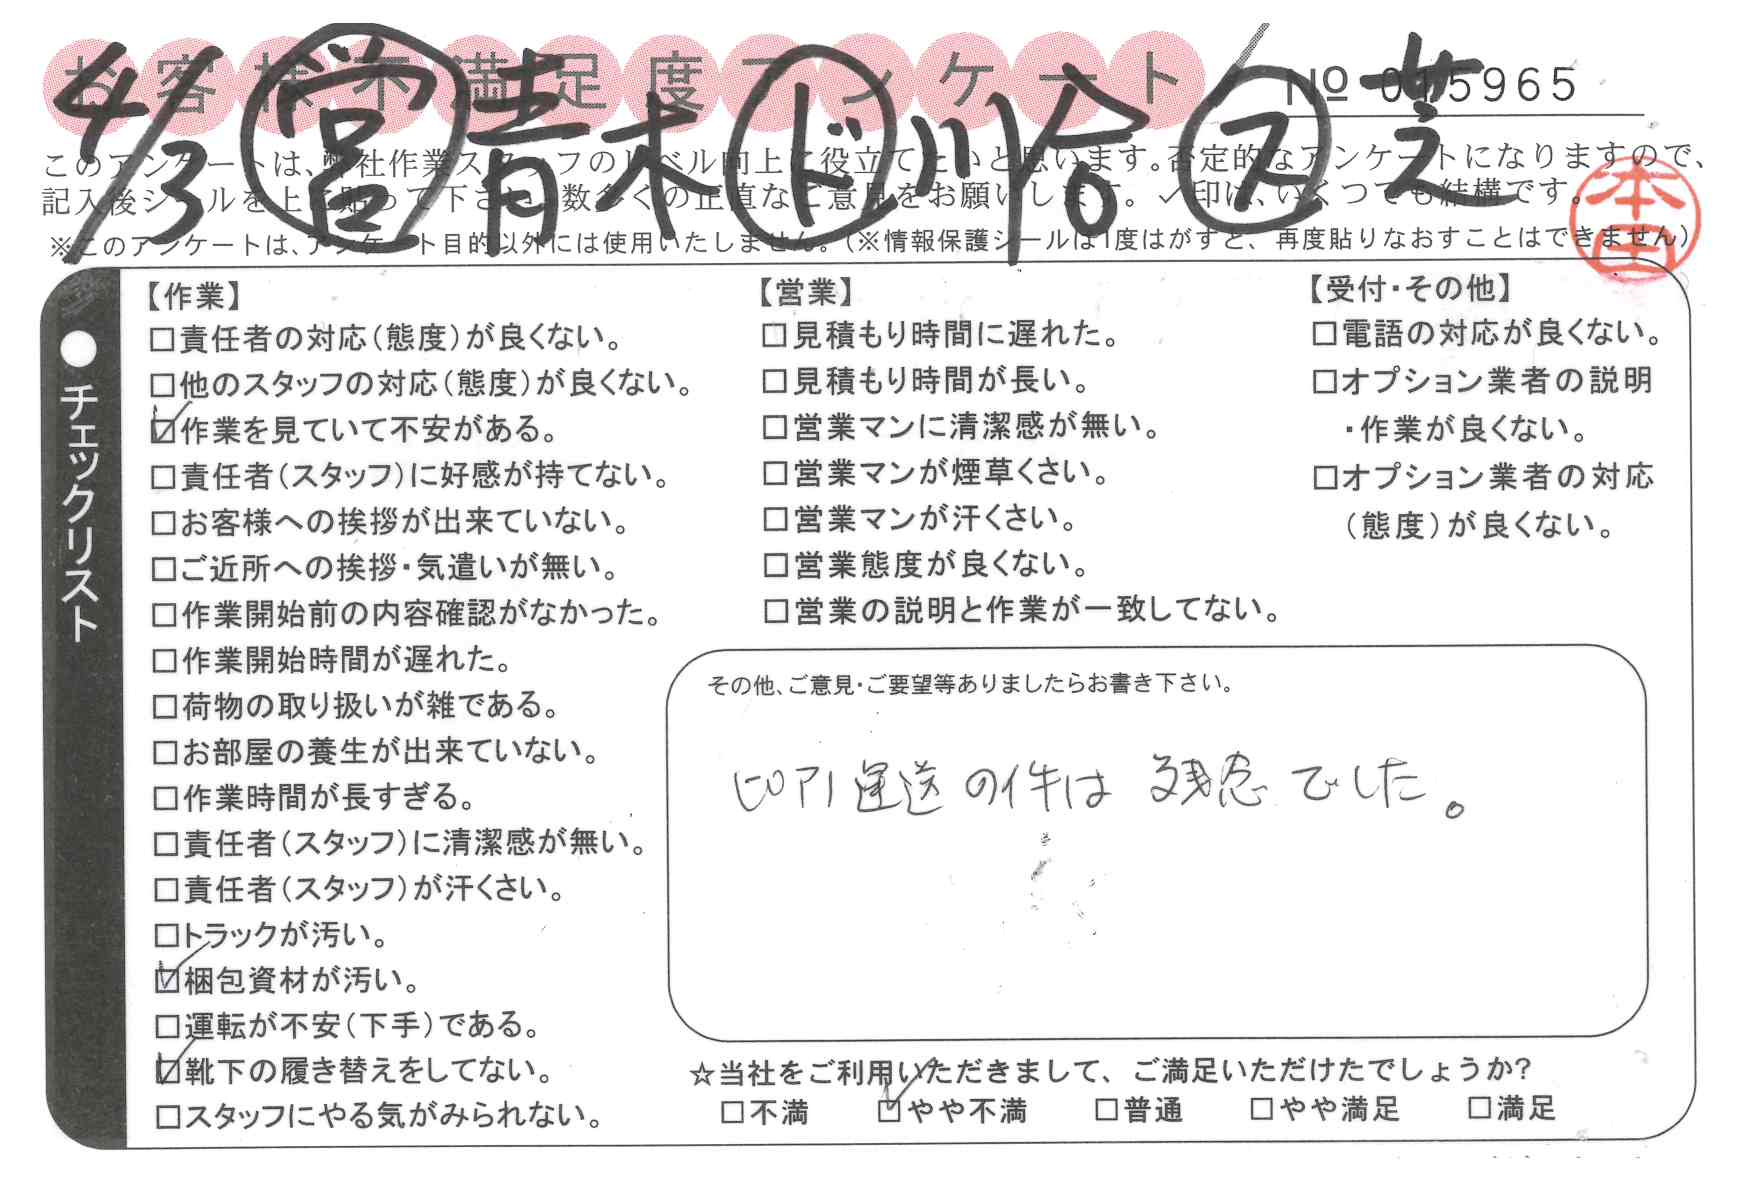 お客様不満足度アンケート
№ 015965
4/3 営 青木 ド 川合 ス 芝
このアンケートは、弊社作業スタッフのレベル向上に役立てたいと思います。否定的なアンケートになりますので、
記入後シールを上に貼って下さい。数多くの正直なご意見をお願いします。✓印は、いくつでも結構です。
※このアンケートは、アンケート目的以外には使用いたしません。(※情報保護シールは1度はがすと、再度貼りなおすことはできません)
本田
●チェックリスト
【作業】
□責任者の対応(態度)が良くない。
□他のスタッフの対応(態度)が良くない。
☑作業を見ていて不安がある。
□責任者(スタッフ)に好感が持てない。
□お客様への挨拶が出来ていない。
□ご近所への挨拶・気遣いが無い。
□作業開始前の内容確認がなかった。
□作業開始時間が遅れた。
□荷物の取り扱いが雑である。
□お部屋の養生が出来ていない。
□作業時間が長すぎる。
□責任者(スタッフ)に清潔感が無い。
□責任者(スタッフ)が汗くさい。
□トラックが汚い。
☑梱包資材が汚い。
□運転が不安(下手)である。
☑靴下の履き替えをしてない。
□スタッフにやる気がみられない。
【営業】
□見積もり時間に遅れた。
□見積もり時間が長い。
□営業マンに清潔感が無い。
□営業マンが煙草くさい。
□営業マンが汗くさい。
□営業態度が良くない。
□営業の説明と作業が一致してない。
【受付・その他】
□電話の対応が良くない。
□オプション業者の説明
・作業が良くない。
□オプション業者の対応
(態度)が良くない。
その他、ご意見・ご要望等ありましたらお書き下さい。
ピアノ運送の件は 残念でした。
☆当社をご利用いただきまして、ご満足いただけたでしょうか?
□不満 ☑やや不満 □普通 □やや満足 □満足